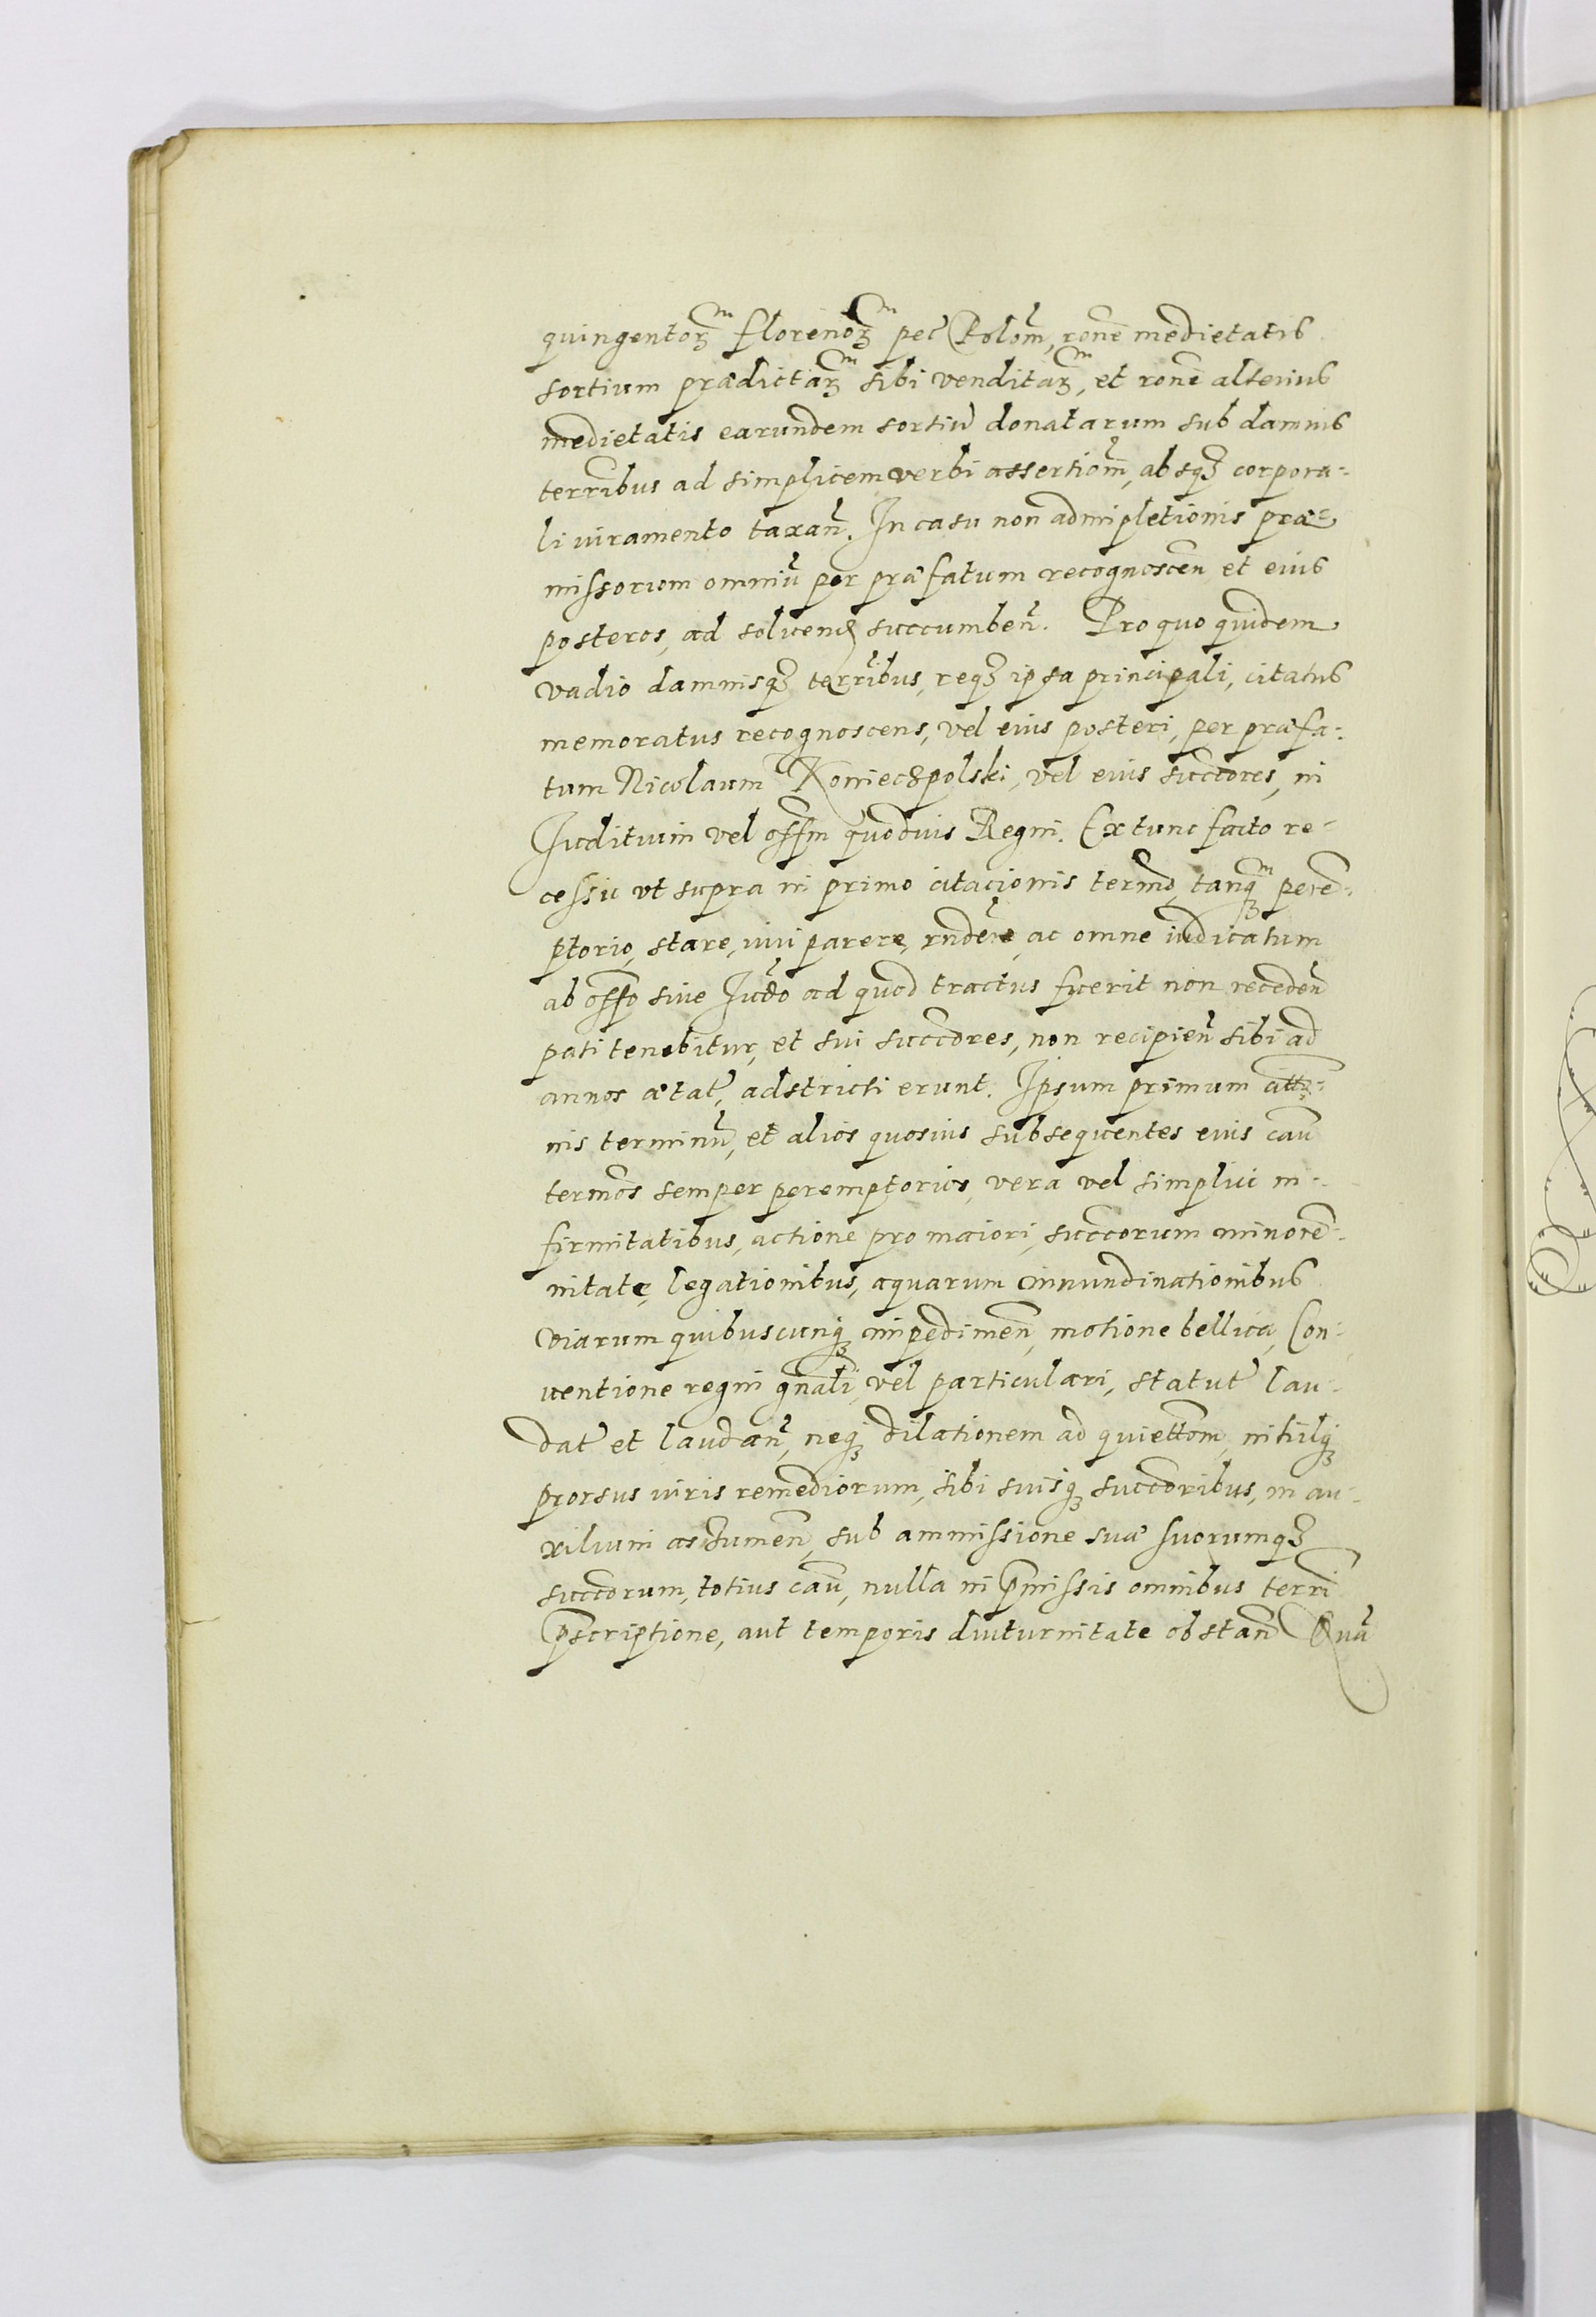 quingentorꝫ florenorꝫ pec̃ Polom̃, rone medietatis
sortium prædictarꝫ sibi venditarꝫ, et rone alterius
medietatis earundem sortiũ donatarum sub damnis
terribus ad simplicem verbi assertiom̃, absqꝫ corpora-
li iuramento taxañ. In casu non adimpletionis præ-
missorum omniũ per præfatum recognoscen et eius
posteros, ad solvend succumbeñ. Pro quo quidem
vadio damnisqꝫ terribus, reqꝫ ipsa principali, citatus
memoratus recognoscens, vel eius posteri, per præfa-
tum Nicolaum Konieczpolski, vel eius succores, in
Iuditium vel offm quoduis Regni. Ex tunc facto re-
cessu vt supra in primo citacionis termo, tanqꝫ perẽ-
ptorio, stare, iuri parere, rndere, ac omne iudicatum
ab offo siue Iudo ad quod tractus fuerit non recedeñ
pati tenebitur, et sui succores, non recipieñ sibi ad
annos ætat̃, adstricti erunt. Ipsum primum citto-
nis terminũ, et alios quosuis subsequentes eius cau
termos semper peremptorios, vera vel simplici in-
firmitatibus, actione pro maiori, succorum minorẽ-
nitate, legationibus, aquarum innundinationibus
viarum quibuscunqꝫ impedimen, motione bellica, Con-
uentione regni gnali, vel particulari, statut̃ lau-
dat̃ et laudañ, neqꝫ dilationem ad quiettom, nihilqꝫ
prorsus iuris remediorum, sibi suisqꝫ succoribus, in au-
xilium assumen, sub ammissione suæ suorumqꝫ
succorum, totius cau, nulla in p̃missis omnibus terri
p̃scriptione, aut temporis diuturnitate obstan Quã